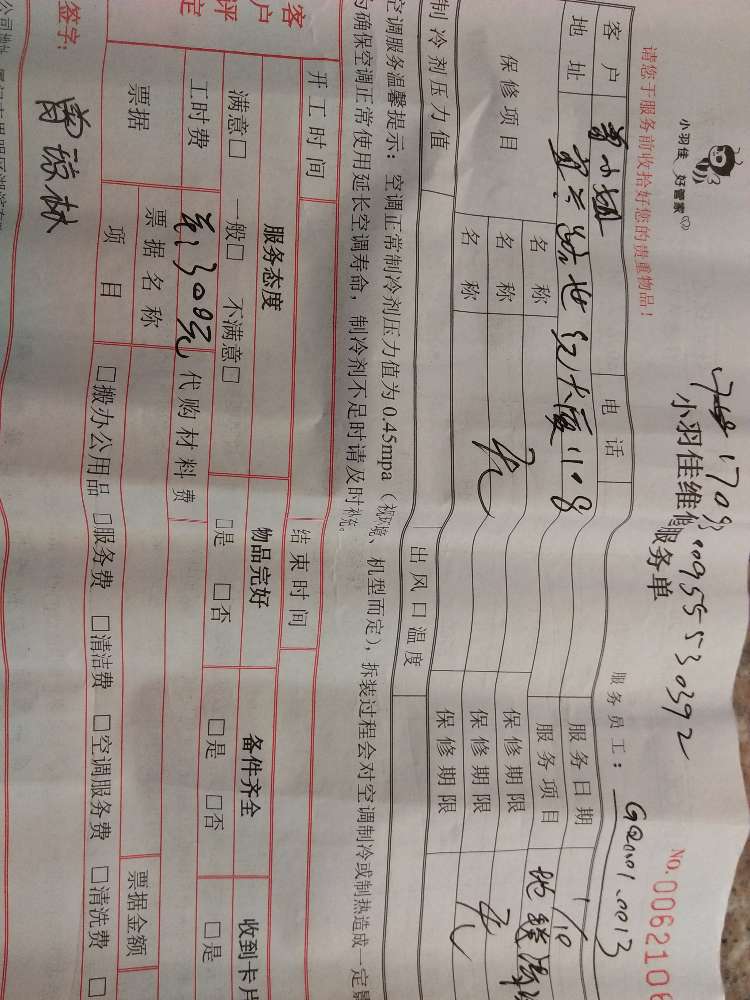 请您于服务前收拾好您的贵重物品！
小羽佳 好管家
小羽佳维修服务单
服务员工：
NO.006210
客户 曾小姐 电话 服务日期 1/10
地址 世纪大厦1108 服务项目
保修项目 名称 无 保修期限
名称 保修期限 无
名称 保修期限
制冷剂压力值 出风口温度
空调服务温馨提示：空调正常制冷剂压力值为0.45mpa（视环境、机型而定），拆装过程会对空调制冷或制热造成一定
为确保空调正常使用延长空调寿命，制冷剂不足时请及时补充。
开工时间 结束时间
客户评定
服务态度 物品完好 备件齐全 收到卡片
满意□ 一般□ 不满意□ □是 □否 □是 □否 □是
工时费 300元 代购材料费
票据 票据名称 票据金额
项目 □搬办公用品 □服务费 □清洁费 □空调服务费 □清洗费 □
签字：